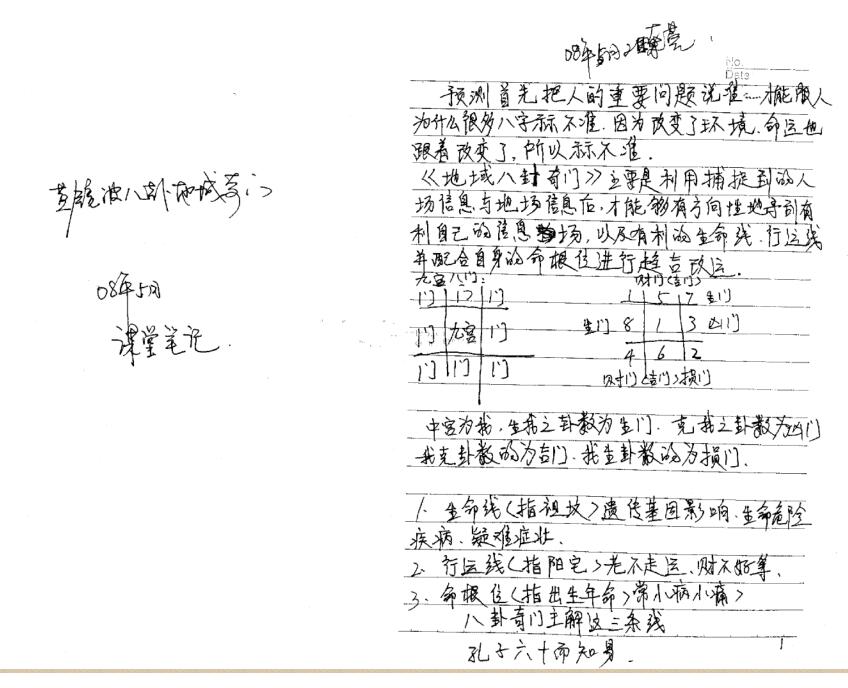 八卦地域奇门
08年5月
课堂笔记.
08年5月2
No.
Date
预测首先把人的重要问题说准……才能服人
为什么很多八字示不准.因为改变了环境.命运也
跟着改变了,所以示不准.
《地域八卦奇门》主要是利用捕捉到的人
场信息与地场信息后,才能够有方向性地寻到有
利自己的信息场,以及有利的生命线.行运线
并配合自身的命根位进行趋吉改运.
九宫八门:
门 门 门
门 九宫 门
门 门 门
财门(吉门)
1 5 7 生门
生门 8 1 3 凶门
4 6 2
财门(吉门)损门
中宫为我,生我之卦数为生门.克我之卦数为凶门
我克卦数的为吉门.我生卦数的为损门.
1. 生命线(指祖坟)遗传基因影响.生命危险
疾病、疑难症状.
2. 行运线(指阳宅)老不走运、财不好等.
3. 命根位(指出生年命)常小病小痛)
八卦奇门主解这三条线
孔子六十而知易.
1